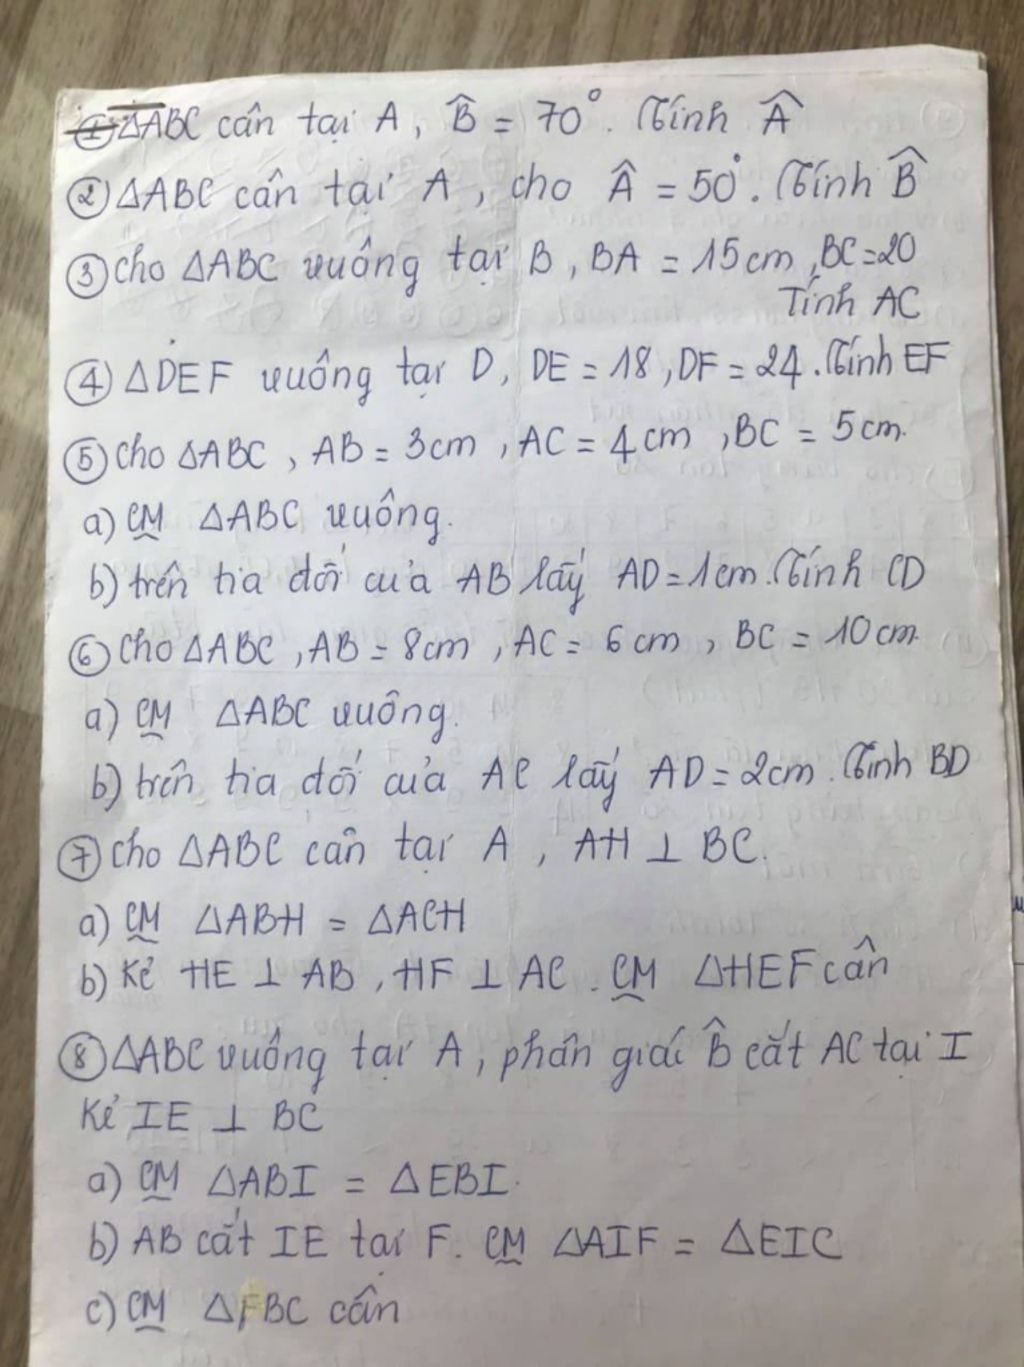 ① ΔABC cân tại A, B̂ = 70°. Tính Â
② ΔABC cân tại A, cho Â = 50°. Tính B̂
③ Cho ΔABC vuông tại B, BA = 15cm, BC=20
Tính AC
④ ΔDEF vuông tại D, DE = 18, DF = 24. Tính EF
⑤ Cho ΔABC, AB = 3cm, AC = 4cm, BC = 5cm.
a) CM ΔABC vuông.
b) trên tia đối của AB lấy AD=1cm. Tính CD
⑥ Cho ΔABC, AB = 8cm, AC = 6cm, BC = 10cm.
a) CM ΔABC vuông.
b) trên tia đối của AC lấy AD = 2cm. Tính BD
⑦ Cho ΔABC cân tại A, AH ⊥ BC.
a) CM ΔABH = ΔACH
b) Kẻ HE ⊥ AB, HF ⊥ AC. CM ΔHEF cân
⑧ ΔABC vuông tại A, phân giác B̂ cắt AC tại I
Kẻ IE ⊥ BC
a) CM ΔABI = ΔEBI.
b) AB cắt IE tại F. CM ΔAIF = ΔEIC
c) CM ΔFBC cân